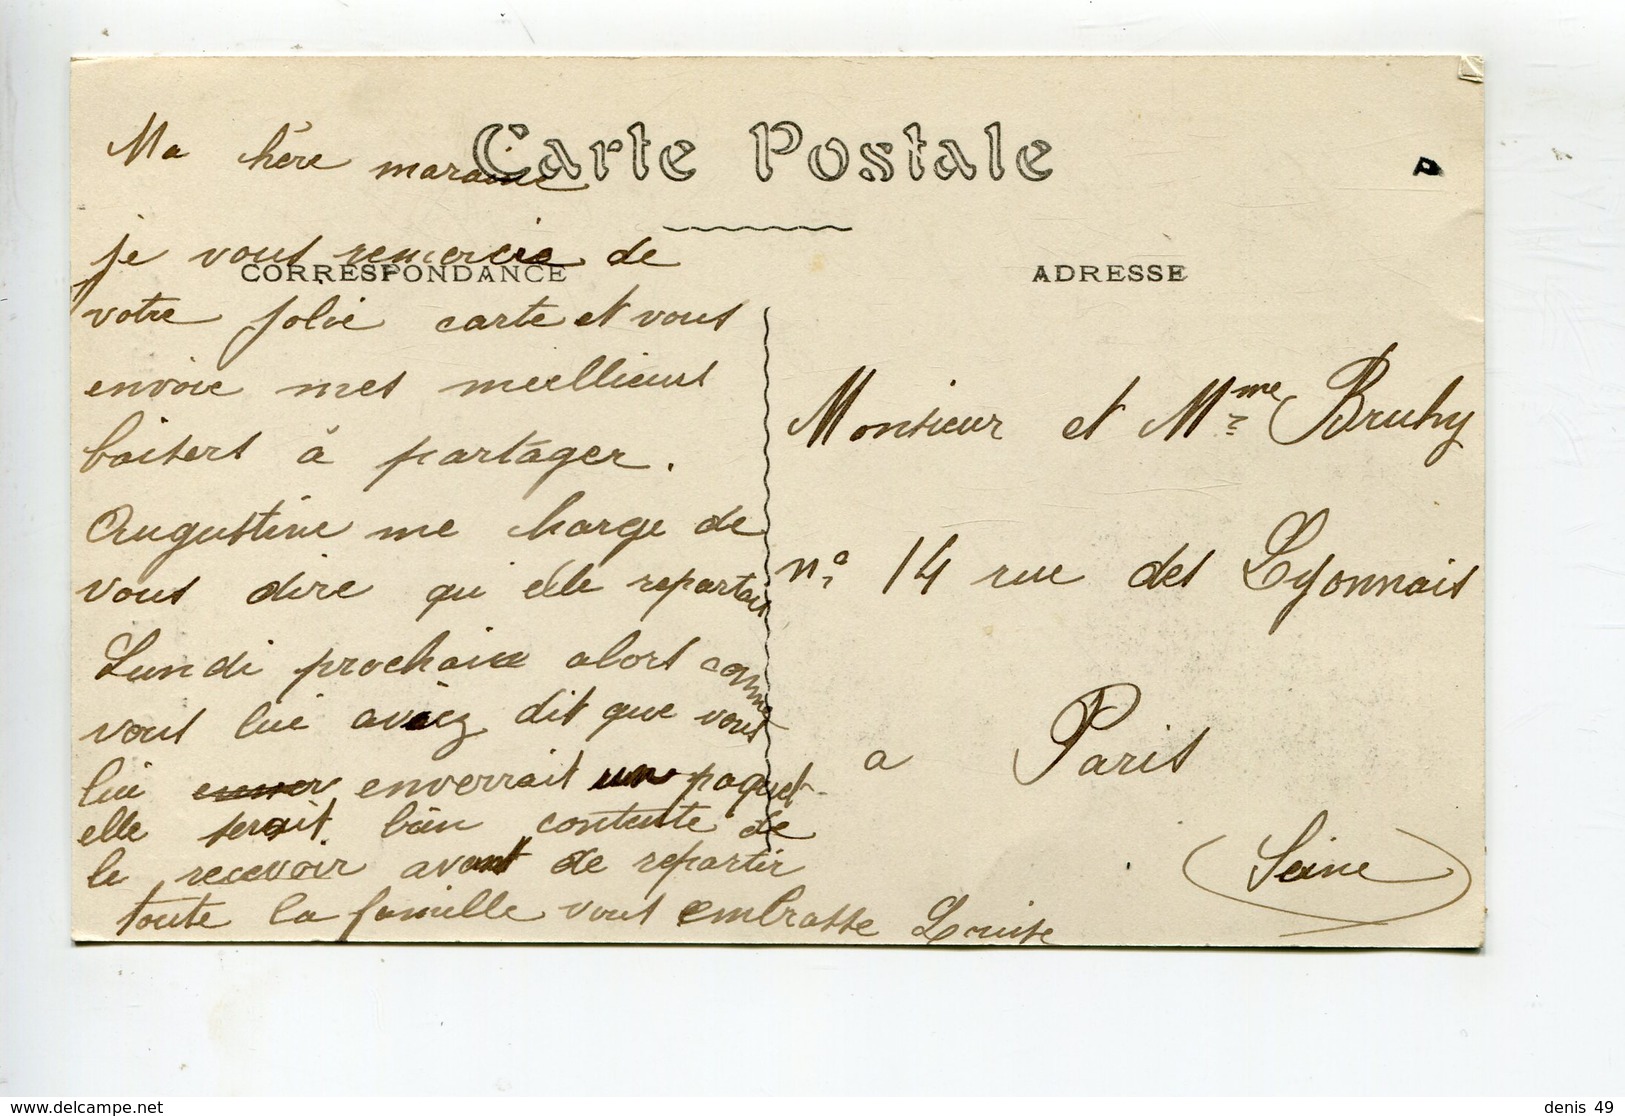 Carte Postale
CORRESPONDANCE
ADRESSE
Ma hère maraine
je vous remercie de
votre jolie carte et vous
envoie mes meillieurs
baisers à partager.
Augustine me harge de
vous dire qu elle repartais
Lundi prochain alors comme
vous lui aviez dit que vous
lui enverrait un paquet
elle serait bien contente de
le recevoir avant de repartir
toute la famille vous embrasse Louise
Monsieur et Mme Bruhy
no 14 rue des Lyonnais
a Paris
(Seine)
www.delcampe.net
denis 49